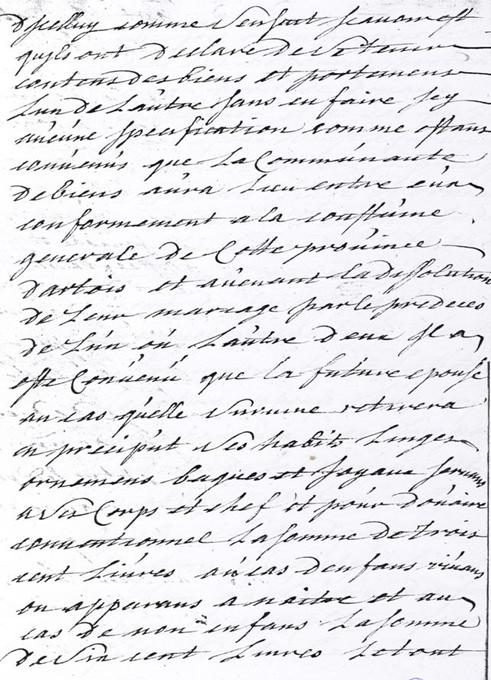 Dicelluy comme s'ensuit scavoir est
quils ont declaré de se tenir
contens des biens et portemens
Lun de Lautre sans en faire icy
aucune specification comme estans
convenus que La Communauté
De biens aura Lieu entre eux
conformement a la coustume
generale de Cette province
Dartois et avenant la dissolution
de Leur mariage par le predeces
de Lun ou Lautre deux il a
esté Convenu que la future epouse
au cas quelle survive retirera
en preciput ses habits Linges
ornemens bagues et joyaux servans
a son Corps et chef et pour Douaire
conventionnel La somme de trois
cent Livres au cas denfans vivans
ou apparans a naitre et au
cas de non enfans La somme
De six cent Livres Le tout